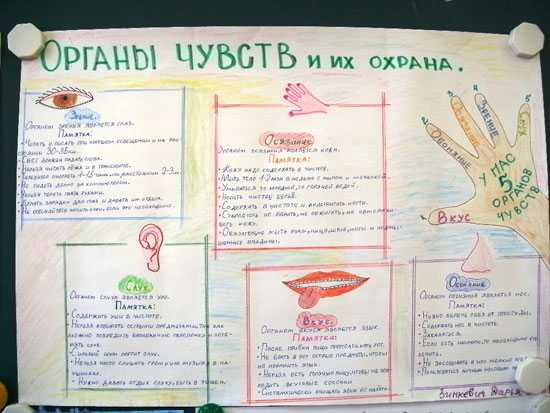 ОРГАНЫ ЧУВСТВ И ИХ ОХРАНА.
Зрение.
ОРГАНОМ ЗРЕНИЯ ЯВЛЯЕТСЯ ГЛАЗ.
ПАМЯТКА:
• ЧИТАТЬ И ПИСАТЬ ПРИ ХОРОШЕМ ОСВЕЩЕНИИ И НА РАС-
30-35см.
• СВЕТ ДОЛЖЕН ПАДАТЬ СЛЕВА.
• НЕЛЬЗЯ ЧИТАТЬ ЛЁЖА И В ТРАНСПОРТЕ.
• ТЕЛЕВИЗОР СМОТРЕТЬ 1-1,5 НА РАССТОЯНИИ 2-3 м.
• НЕ СИДЕТЬ ДОЛГО ЗА КОМПЬЮТЕРОМ.
• НЕЛЬЗЯ ТЕРЕТЬ ГЛАЗА РУКАМИ.
• ДЕЛАТЬ ЗАРЯДКУ ДЛЯ ГЛАЗ И ДАВАТЬ ИМ ОТДЫХ.
• НЕ СТЕСНЯЙТЕСЬ НОСИТЬ ОЧКИ, ЕСЛИ ЭТО НЕОБХОДИМО.
Осязание.
ОРГАНОМ ОСЯЗАНИЯ ЯВЛЯЕТСЯ КОЖА.
ПАМЯТКА:
• КОЖУ НАДО СОДЕРЖАТЬ В ЧИСТОТЕ.
• МЫТЬ ТЕЛО 1-2 РАЗА В НЕДЕЛЮ С МЫЛОМ И МОЧАЛКОЙ.
• УМЫВАТЬСЯ ТО ХОЛОДНОЙ, ТО ГОРЯЧЕЙ ВОДОЙ.
• НОСИТЬ ЧИСТОЕ БЕЛЬЁ.
• СОДЕРЖАТЬ В ЧИСТОТЕ И ПОДСТРИГАТЬ НОГТИ.
• СТАРАТЬСЯ НЕ РАНИТЬ, НЕ ОБЖИГАТЬ, НЕ ОБМОРАЖИ-
ВАТЬ КОЖУ.
• ОБЯЗАТЕЛЬНО МЫТЬ РУКИ, ЛИЦО, ШЕЮ, НОГИ И ПОДМЫ-
ШЕЧНЫЕ ВПАДИНЫ.
ОБОНЯНИЕ
ОСЯЗАНИЕ
ЗРЕНИЕ
СЛУХ
ВКУС
У НАС
5
ОРГАНОВ
ЧУВСТВ.
Слух.
ОРГАНОМ СЛУХА ЯВЛЯЕТСЯ УХО.
ПАМЯТКА:
• СОДЕРЖАТЬ УШИ В ЧИСТОТЕ.
• НЕЛЬЗЯ КОВЫРЯТЬ ОСТРЫМИ ПРЕДМЕТАМИ, ТАК КАК
МОЖНО ПОВРЕДИТЬ БАРАБАННУЮ ПЕРЕПОНКУ И ПОТЕ-
РЯТЬ СЛУХ.
• СИЛЬНЫЙ ШУМ ПОРТИТ СЛУХ.
• НЕЛЬЗЯ ЧАСТО СЛУШАТЬ ГРОМКУЮ МУЗЫКУ В НА-
УШНИКАХ.
• НУЖНО ДАВАТЬ ОТДЫХ СЛУХУ, БЫТЬ В ТИШИНЕ.
Вкус.
ОРГАНОМ ВКУСА ЯВЛЯЕТСЯ ЯЗЫК
ПАМЯТКА:
• ПОСЛЕ ПРИЁМА ПИЩИ ПРОПОЛАСКАТЬ РОТ.
• НЕ БРАТЬ В РОТ ОСТРЫЕ ПРЕДМЕТЫ, ЧТОБЫ
НЕ ПОРАНИТЬ ЯЗЫК.
• НЕЛЬЗЯ ЕСТЬ ГОРЯЧУЮ ПИЩУ, ЧТОБЫ НЕ ПОВ-
РЕДИТЬ ВКУСОВЫЕ СОСОЧКИ
• СИСТЕМАТИЧЕСКИ ОЧИЩАТЬ ЯЗЫК ОТ НАЛЁТА.
Обоняние.
ОРГАНОМ ОБОНЯНИЯ ЯВЛЯЕТСЯ НОС.
ПАМЯТКА:
• НУЖНО БЕРЕЧЬ СЕБЯ ОТ ПРОСТУДЫ.
• СОДЕРЖАТЬ НОС В ЧИСТОТЕ.
• ЗАКАЛЯТЬСЯ.
• ЕСЛИ ЕСТЬ НАСМОРК, ТО НЕОБХОДИМО ЕГО
ЛЕЧИТЬ.
• НЕ ЗАСОВЫВАТЬ В НОС МЕЛКИЕ
• ПОЛЬЗОВАТЬСЯ ЛИЧНЫМ НОСОВЫМ
Зинкевич Дарья